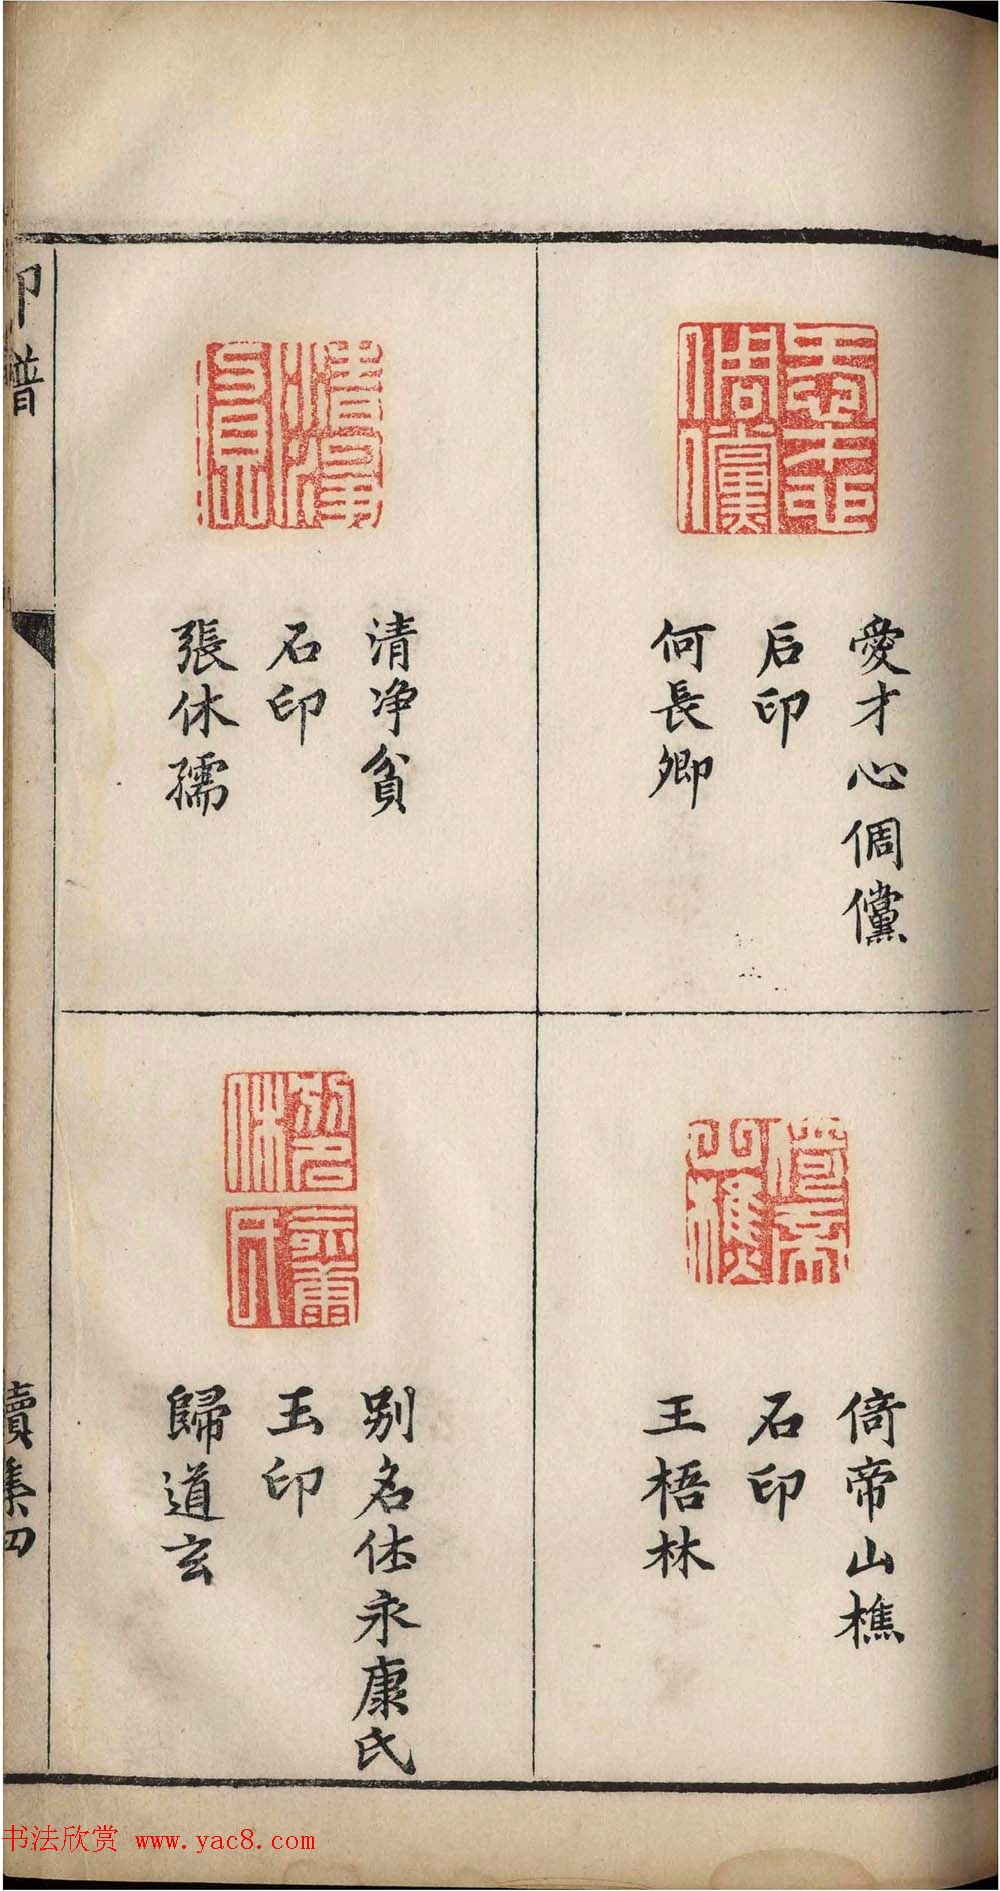 愛才心倜儻
后印
何長卿
倚帝山樵
石印
王梧林
清净貧
石印
張休孺
别名休永康氏
玉印
歸道玄
印譜
續集四
书法欣赏 www.yac8.com